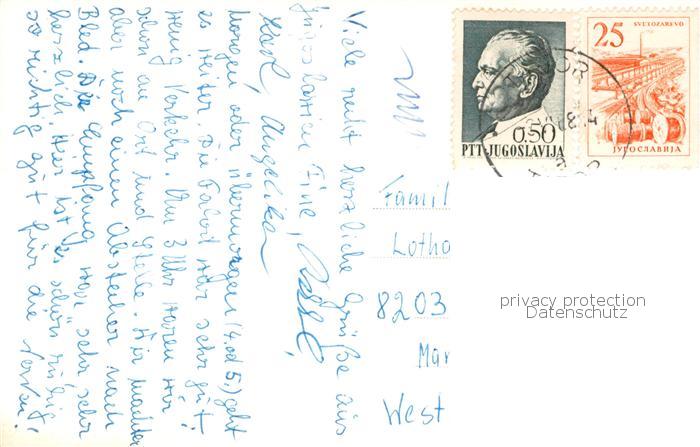 Viele recht herzliche Grüße aus
Jugoslawien
Karl, Angelika
Morgen oder übermorgen (4. od 5.) geht
es weiter. Die Fahrt war sehr gut!
Wenig Verkehr. Um 3 Uhr waren wir
schon an Ort und Stelle. Wir machten
aber noch einen Abstecher nach
Bled. Die Empfang war sehr, sehr
herzlich. Hier ist es schön ruhig,
so richtig gut für die Nerven!
0.50
PTT-JUGOSLAVIJA
25
SVETOZAREVO
ЈУГОСЛАВИЈА
Famil
Lotha
8203
Mar
West
privacy protection
Datenschutz